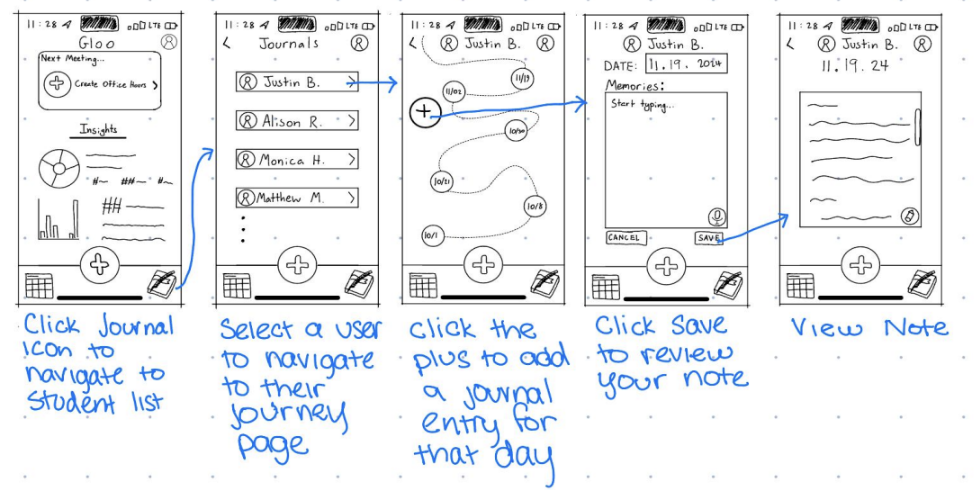 11:28 LTE
Gloo
Next Meeting...
Create Office Hours >
Insights
#
##
#
##
Click Journal
icon to
navigate to
student list
11:28 LTE
< Journals
Justin B. >
Alison R. >
Monica H. >
Matthew M. >
Select a user
to navigate
to their
journey
page
11:28 LTE
< Justin B.
11/19
11/02
+
10/30
10/21
10/8
10/1
click the
plus to add
a journal
entry for
that day
11:28 LTE
Justin B.
DATE: 11.19.2024
Memories:
Start typing...
CANCEL SAVE
Click save
to review
your note
11:28 LTE
< Justin B.
11.19.24
View Note